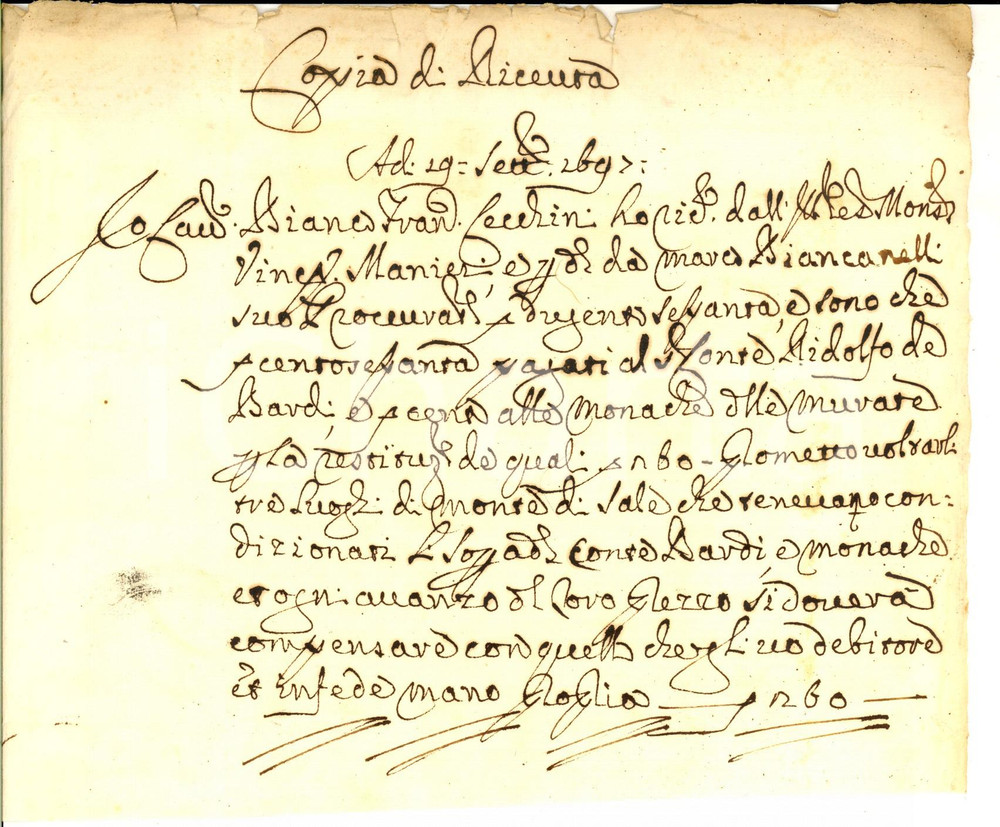 Copia di Riceuta
Ad: 29= Sett.e 1697:
Io Cau.r Bianco Fran.o Cecchini ho ric.o dall' Ill.e Mons.r
Vinc.o Manieri, e p d.o da Marco Biancanelli
suo Procurat.e p dugento sessanta, e sono che
p centosessanta pagati al Conte Ridolfo de
Bardi, e p cento alle Monache d lle Murate
p la restituz.e de quali p 260 - Prometto voltarli
tre luoghi di Monte di Sale che tenevano con=
dizionati li sopradi Conte Bardi e monache
et ogni avanzo d l loro Prezzo si doverà
compensare con quello che gli vo debitore
et in fede mano Propria — p 260 —